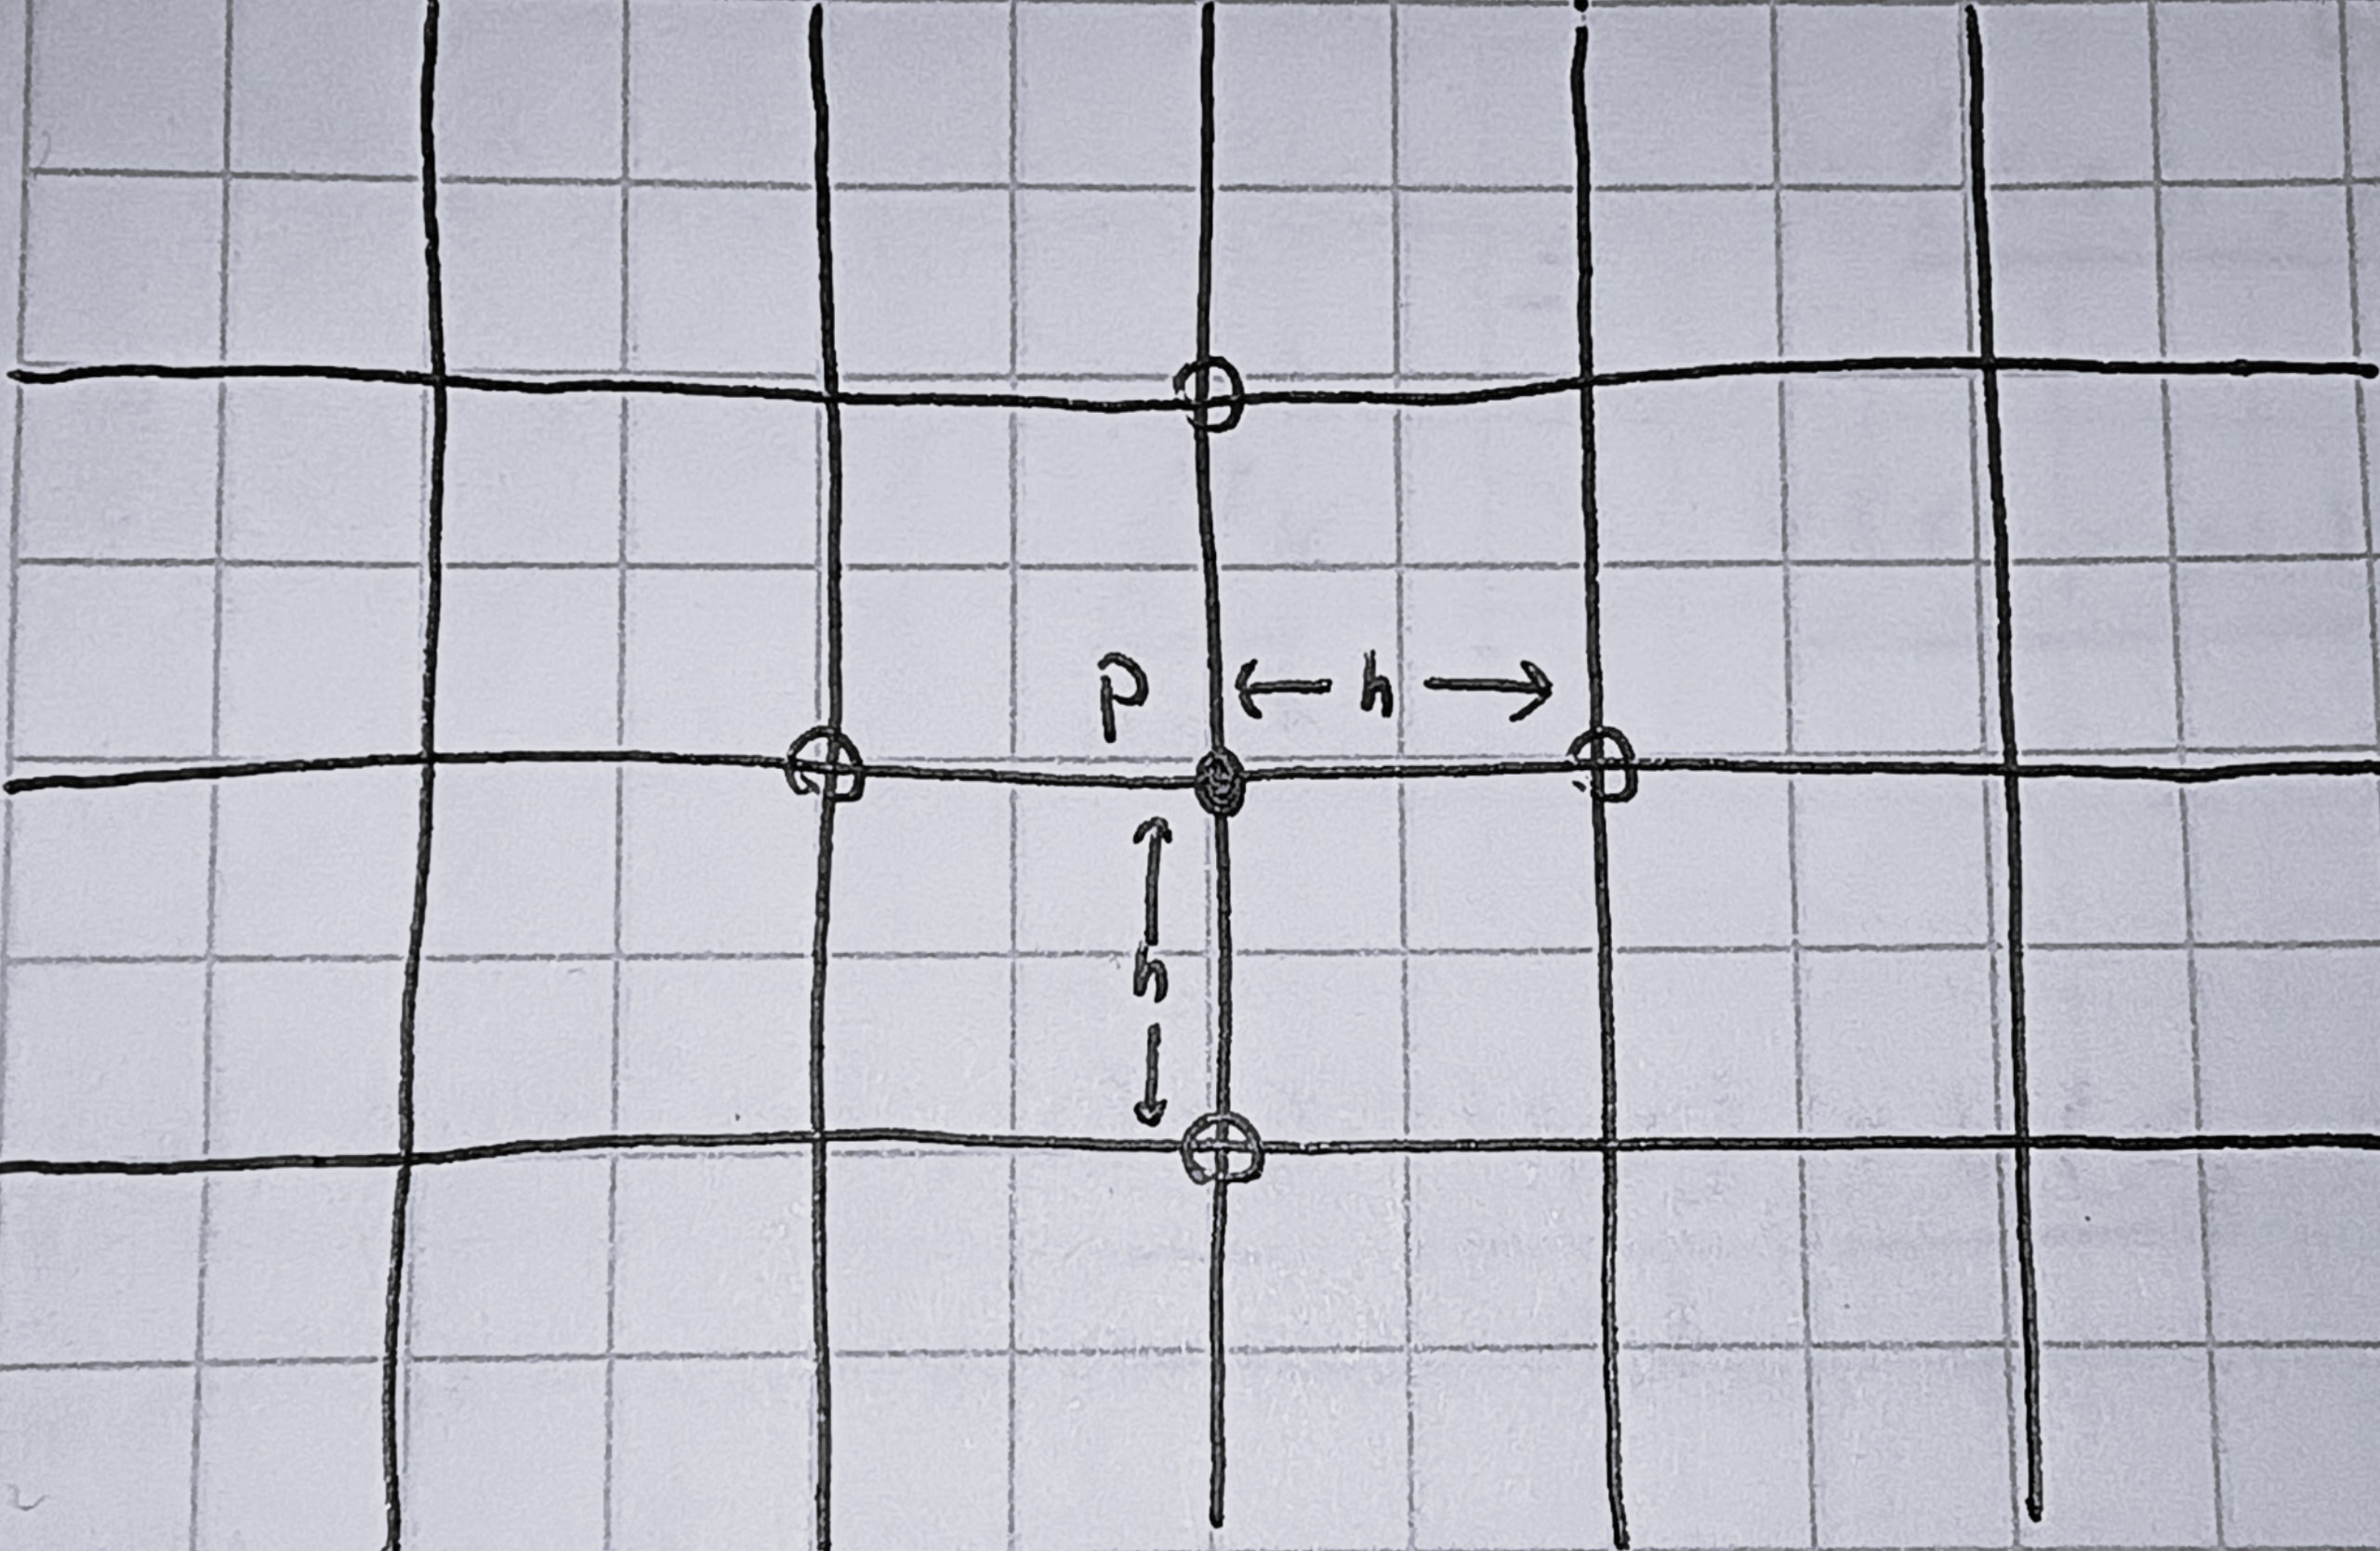 p ← h →
h